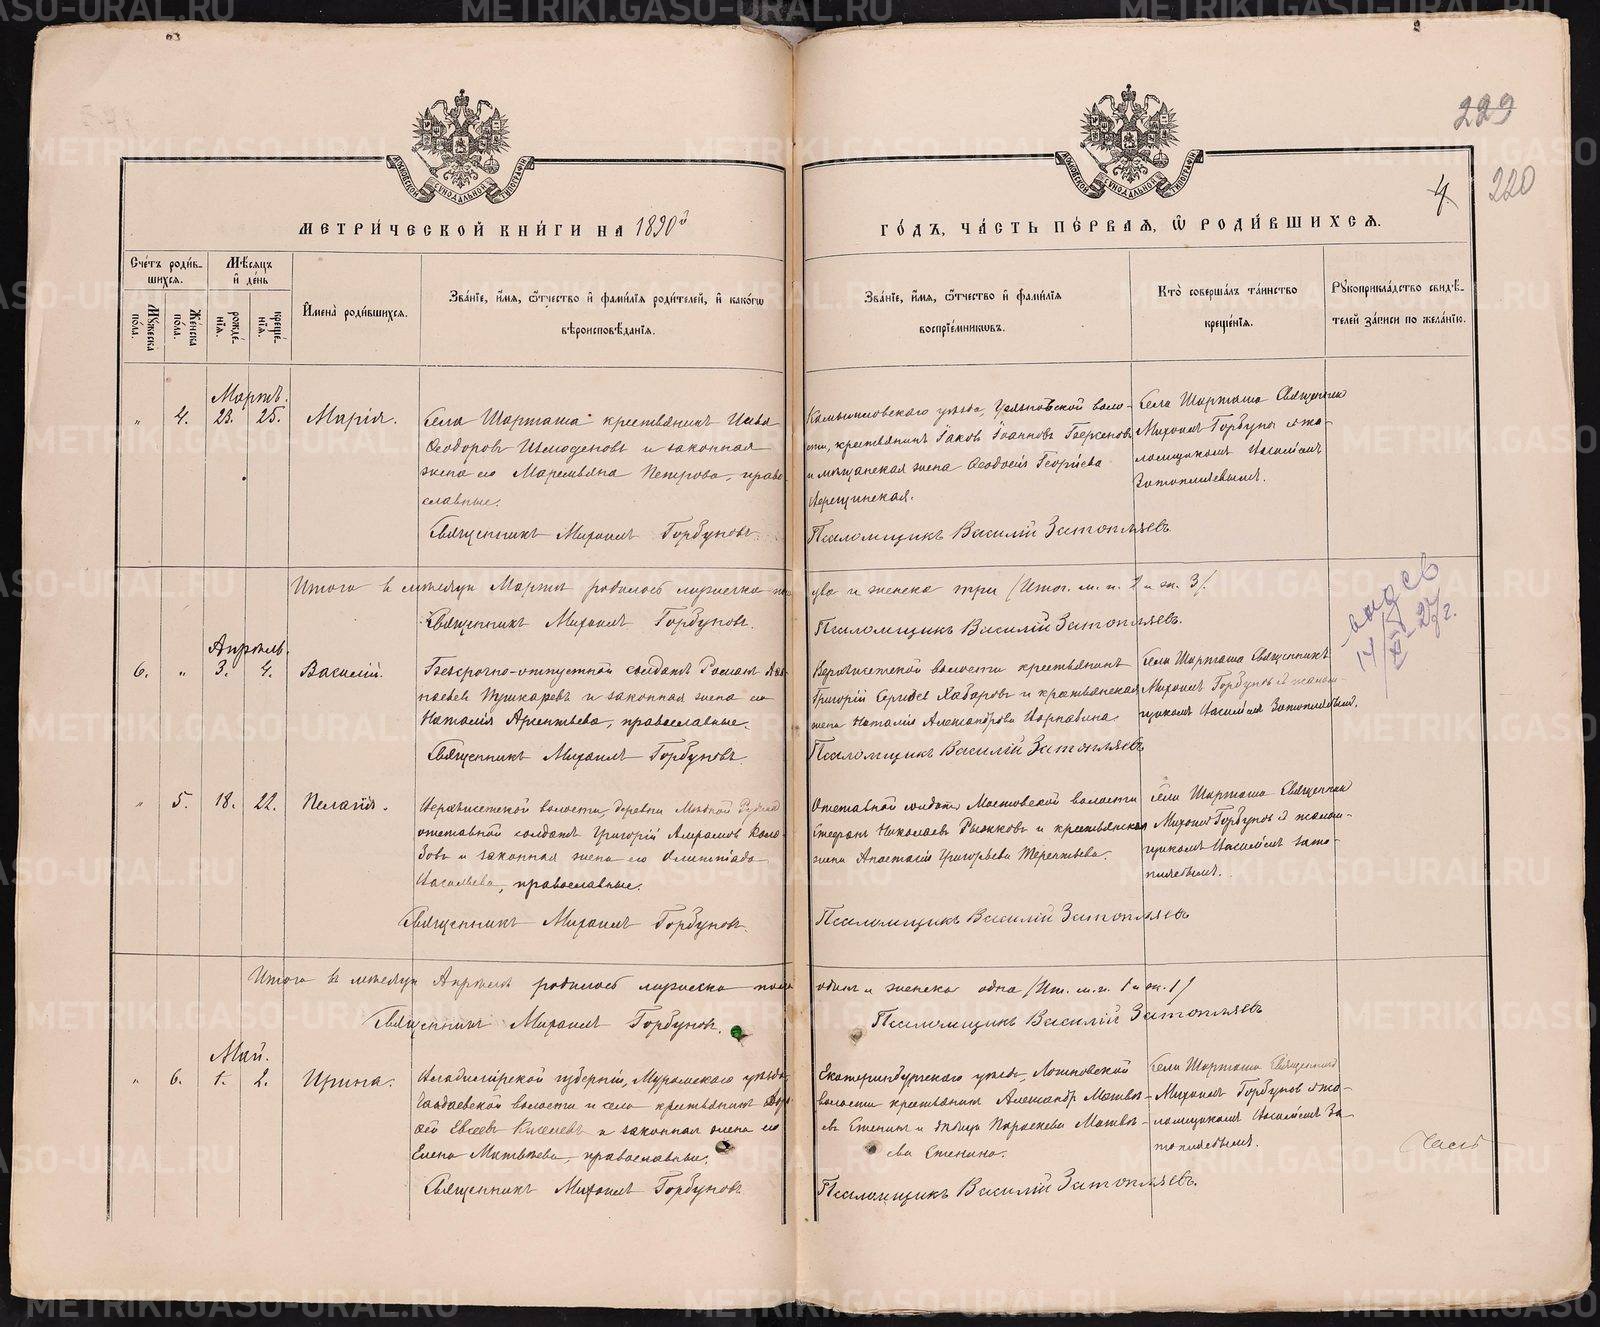 229
220
4
МЕТРИ́ЧЕСКОЙ КНИ́ГИ НА 1890й
ГО́ДЪ, ЧА́СТЬ ПЕ́РВАЯ, Ѿ РОДИ́ВШИХСѦ.
Сче́тъ роди́в-
шихсѧ.
Мѣ́сѧцъ
и҆ де́нь
Мꙋ́жеска по́ла.
Же́нска по́ла.
рожде́-
нїѧ.
креще́-
нїѧ.
И҆мена̀ роди́вшихсѧ.
Зва́нїе, и҆́мѧ, ѻ҆́тчество и҆ фами́лїѧ роди́телей, и҆ како́гѡ
вѣроисповѣ́данїѧ.
Зва́нїе, и҆́мѧ, ѻ҆́тчество и҆ фами́лїѧ
воспрїе́мникѡвъ.
Кто̀ соверша́лъ та́инство
креще́нїѧ.
Рꙋкоприкла́дство свидѣ́-
телей за́писи по жела́нїю.
Мартъ.
" 4. 23. 25. Марія.
Села Шарташа крестьянинъ
Ѳеодоровъ и законная
жена его Петрова, право-
славные.
Священникъ Михаилъ Горбуновъ.
Камышловскаго уѣзда, воло-
сти, крестьянинъ Іаковъ Іоанновъ
и мѣщанская жена Ѳеодосія Георгіева
Псаломщикъ Василій Затопляевъ.
Села Шарташа Священник
Михаилъ Горбуновъ с пса-
ломщикомъ Василіемъ
Затопляевымъ.
Итого в мѣсяцѣ Мартѣ родилось мужеска по-
ла два и женска три /Итог. м. п. 2 и ж. 3/.
Священникъ Михаилъ Горбуновъ.
Псаломщикъ Василій Затопляевъ.
14/XI 27 г.
Апрѣль.
6. " 3. 4. Василій.
Безсрочно-отпускной солдатъ Романъ
Пушкаревъ и законная жена его
Наталія Арсентьева, православные.
Священникъ Михаилъ Горбуновъ.
Верхъисетской волости крестьянинъ
Григорій Сергѣев Хабаровъ и крестьянская
жена Наталія Александрова
Псаломщикъ Василій Затопляевъ
Села Шарташа Священникъ
Михаилъ Горбуновъ с псалом-
щикомъ Василіемъ Затопляевым.
" 5. 18. 22. Пелагія.
Верхъисетской волости, деревни Мѣдной Рудн
отставной солдатъ Григорій
и законная жена его Олимпіада
Васильева, православные.
Священникъ Михаилъ Горбуновъ.
Отставной солдатъ Мостовской волости
Стефанъ Николаевъ Рыжковъ и крестьянская
жена Анастасія Григорьева Терентьева.
Псаломщикъ Василій Затопляевъ
Села Шарташа Священник
Михаилъ Горбуновъ с псалом-
щикомъ Василіемъ Зато-
пляевымъ.
Итого в мѣсяцѣ Апрѣлѣ родилось мужеска пола
одинъ и женска одна /Ит. м. п. 1 и ж. 1/
Священникъ Михаилъ Горбуновъ.
Псаломщикъ Василій Затопляевъ
Май.
" 6. 1. 2. Ирина.
Владимірской губерніи, Муромскаго уѣзда,
волости и села крестьянинъ
Евсеевъ Киселевъ и законная жена его
Елена Матвѣева, православные.
Священникъ Михаилъ Горбуновъ
Екатеринбургскаго уѣзда,
волости крестьянинъ Александръ Матвѣ-
евъ Стенинъ и дѣвица Параскева Матвѣ-
ева Стенина.
Псаломщикъ Василій Затопляевъ.
Села Шарташа Священник
Михаилъ Горбуновъ с пса-
ломщикомъ Василіемъ За-
топляевымъ.
METRIKI.GASO-URAL.RU